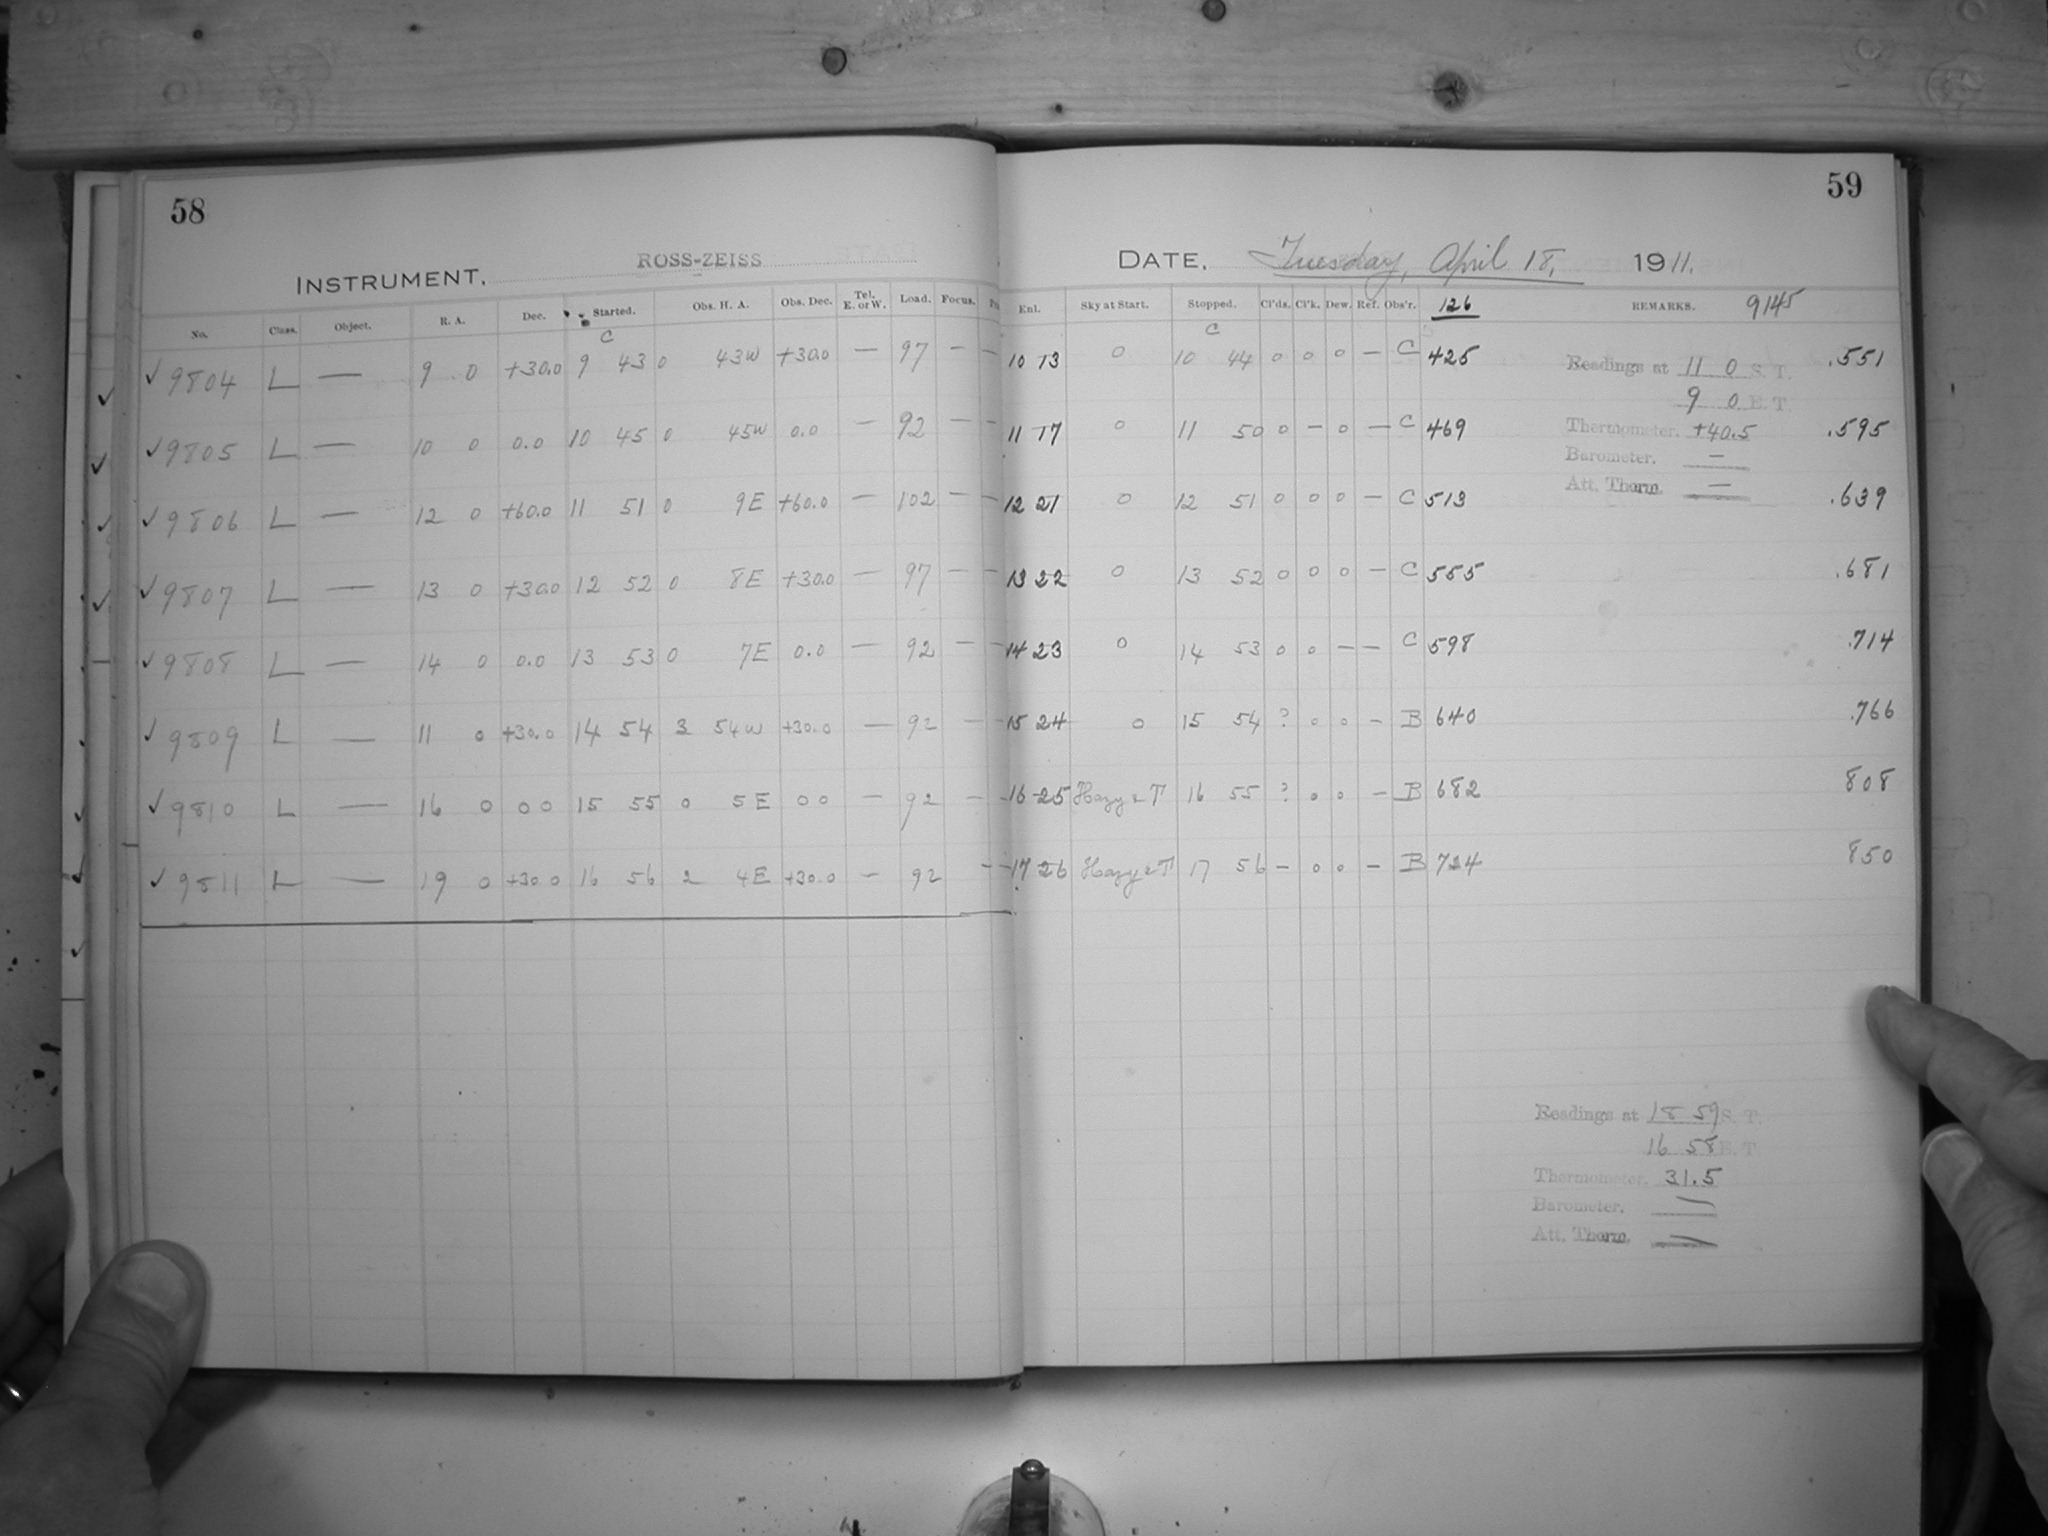 58
INSTRUMENT, ROSS-ZEISS
No. Class. Object. R. A. Dec. Started. Obs. H. A. Obs. Dec. Tel. E. or W. Load. Focus.
C
✓ 9804 L — 9 0 +30.0 9 43 0 43W +30.0 — 97 — —
✓ 9805 L — 10 0 0.0 10 45 0 45W 0.0 — 92 — —
✓ 9806 L — 12 0 +60.0 11 51 0 9E +60.0 — 102 — —
✓ 9807 L — 13 0 +30.0 12 52 0 8E +30.0 — 97 — —
✓ 9808 L — 14 0 0.0 13 53 0 7E 0.0 — 92 — —
✓ 9809 L — 11 0 +30.0 14 54 3 54W +30.0 — 92 — —
✓ 9810 L — 16 0 0 0 15 55 0 5E 0 0 — 92 — —
✓ 9811 L — 19 0 +30.0 16 56 2 4E +30.0 — 92 — —
59
DATE, Tuesday, April 18, 1911.
Enl. Sky at Start. Stopped. Cl'ds. Cl'k. Dew. Ref. Obs'r. 126 REMARKS. 9145
C
10 13 0 10 44 0 0 0 — C 425 Readings at 11 0 S. T. .551
9 0 E. T.
11 17 0 11 50 0 — 0 — C 469 Thermometer. +40.5 .595
Barometer. —
Att. Therm. —
12 21 0 12 51 0 0 0 — C 513 .639
13 22 0 13 52 0 0 0 — C 555 .681
14 23 0 14 53 0 0 — — C 598 .714
15 24 0 15 54 ? 0 0 — B 640 .766
16 25 Hazy & T 16 55 ? 0 0 — B 682 808
17 26 Hazy & T 17 56 — 0 0 — B 724 850
Readings at 18 59 S. T.
16 58 E. T.
Thermometer. 31.5
Barometer. —
Att. Therm. —